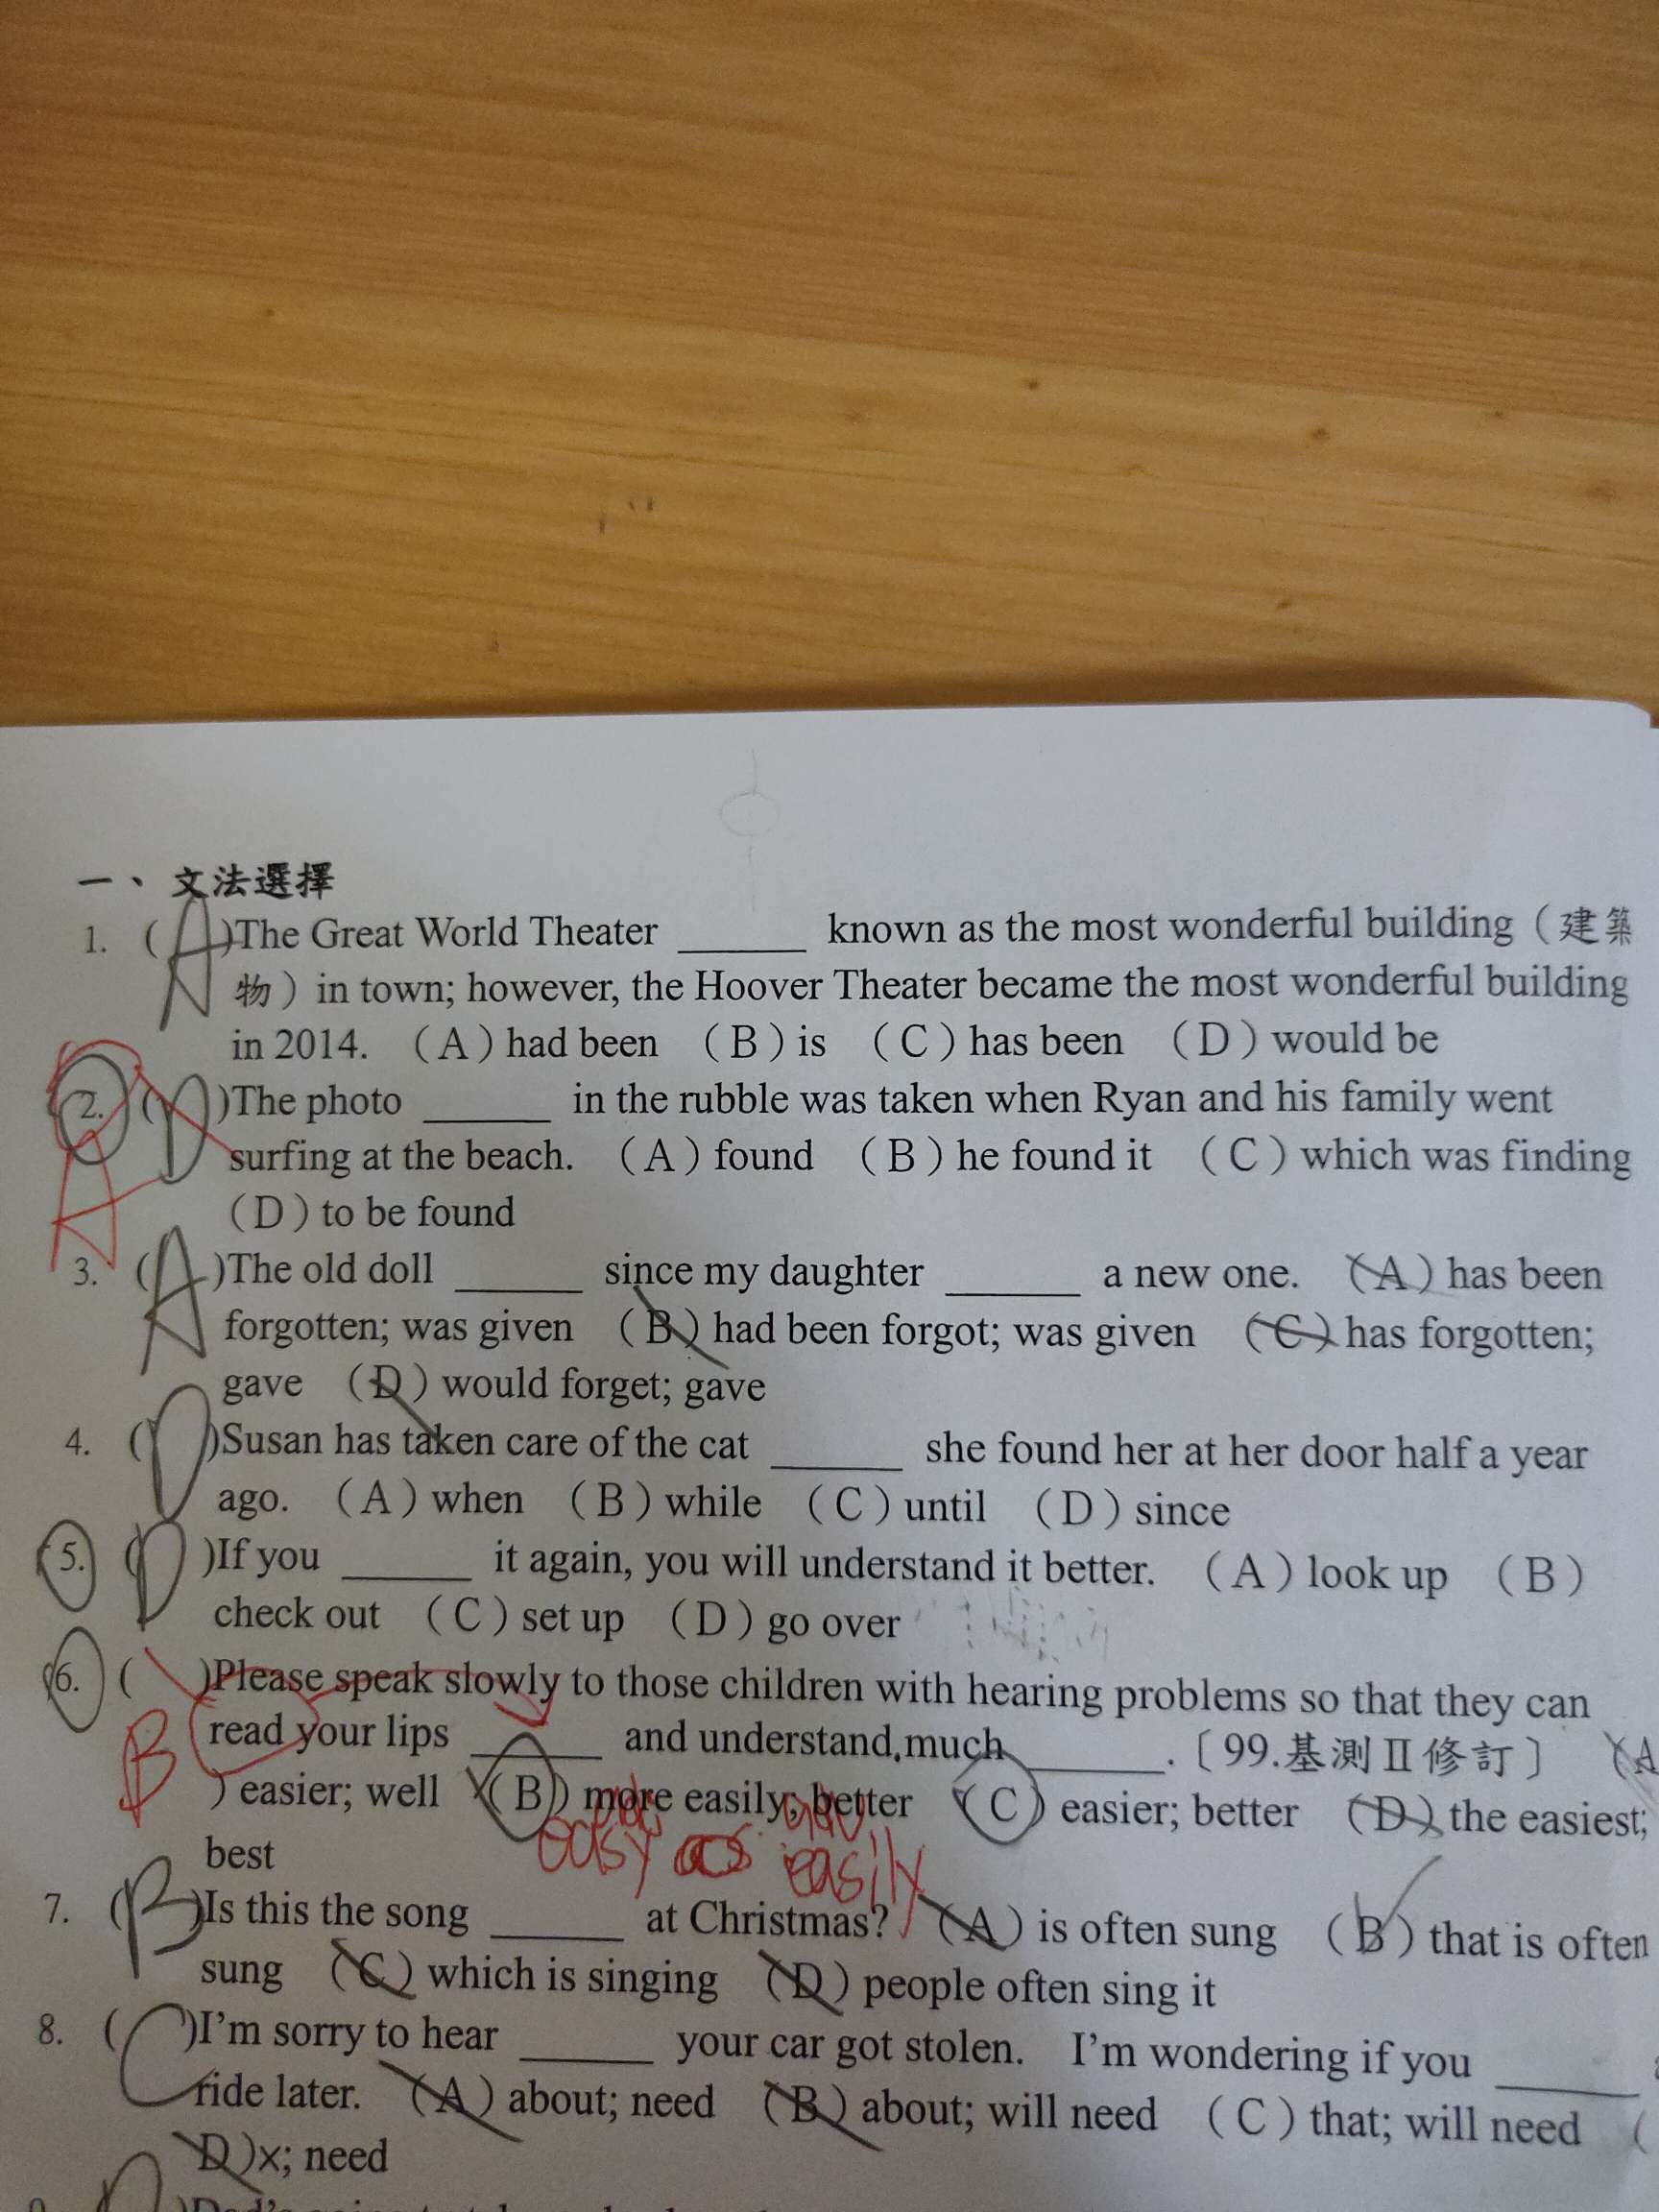 一、文法選擇
1. ( A )The Great World Theater ______ known as the most wonderful building（建築
物）in town; however, the Hoover Theater became the most wonderful building
in 2014. （A）had been （B）is （C）has been （D）would be
2. ( D )The photo ______ in the rubble was taken when Ryan and his family went
A
surfing at the beach. （A）found （B）he found it （C）which was finding
（D）to be found
3. ( A )The old doll ______ since my daughter ______ a new one. （A）has been
forgotten; was given （B）had been forgot; was given （C）has forgotten;
gave （D）would forget; gave
4. ( D )Susan has taken care of the cat ______ she found her at her door half a year
ago. （A）when （B）while （C）until （D）since
5. ( D )If you ______ it again, you will understand it better. （A）look up （B）
check out （C）set up （D）go over
6. ( )Please speak slowly to those children with hearing problems so that they can
B
read your lips ______ and understand much ______.〔99.基測Ⅱ修訂〕 （A
）easier; well （B）more easily; better （C）easier; better （D）the easiest;
easy as easily
best
7. ( B )Is this the song ______ at Christmas? （A）is often sung （B）that is often
sung （C）which is singing （D）people often sing it
8. ( C )I'm sorry to hear ______ your car got stolen. I'm wondering if you ______
ride later. （A）about; need （B）about; will need （C）that; will need （
D）x; need